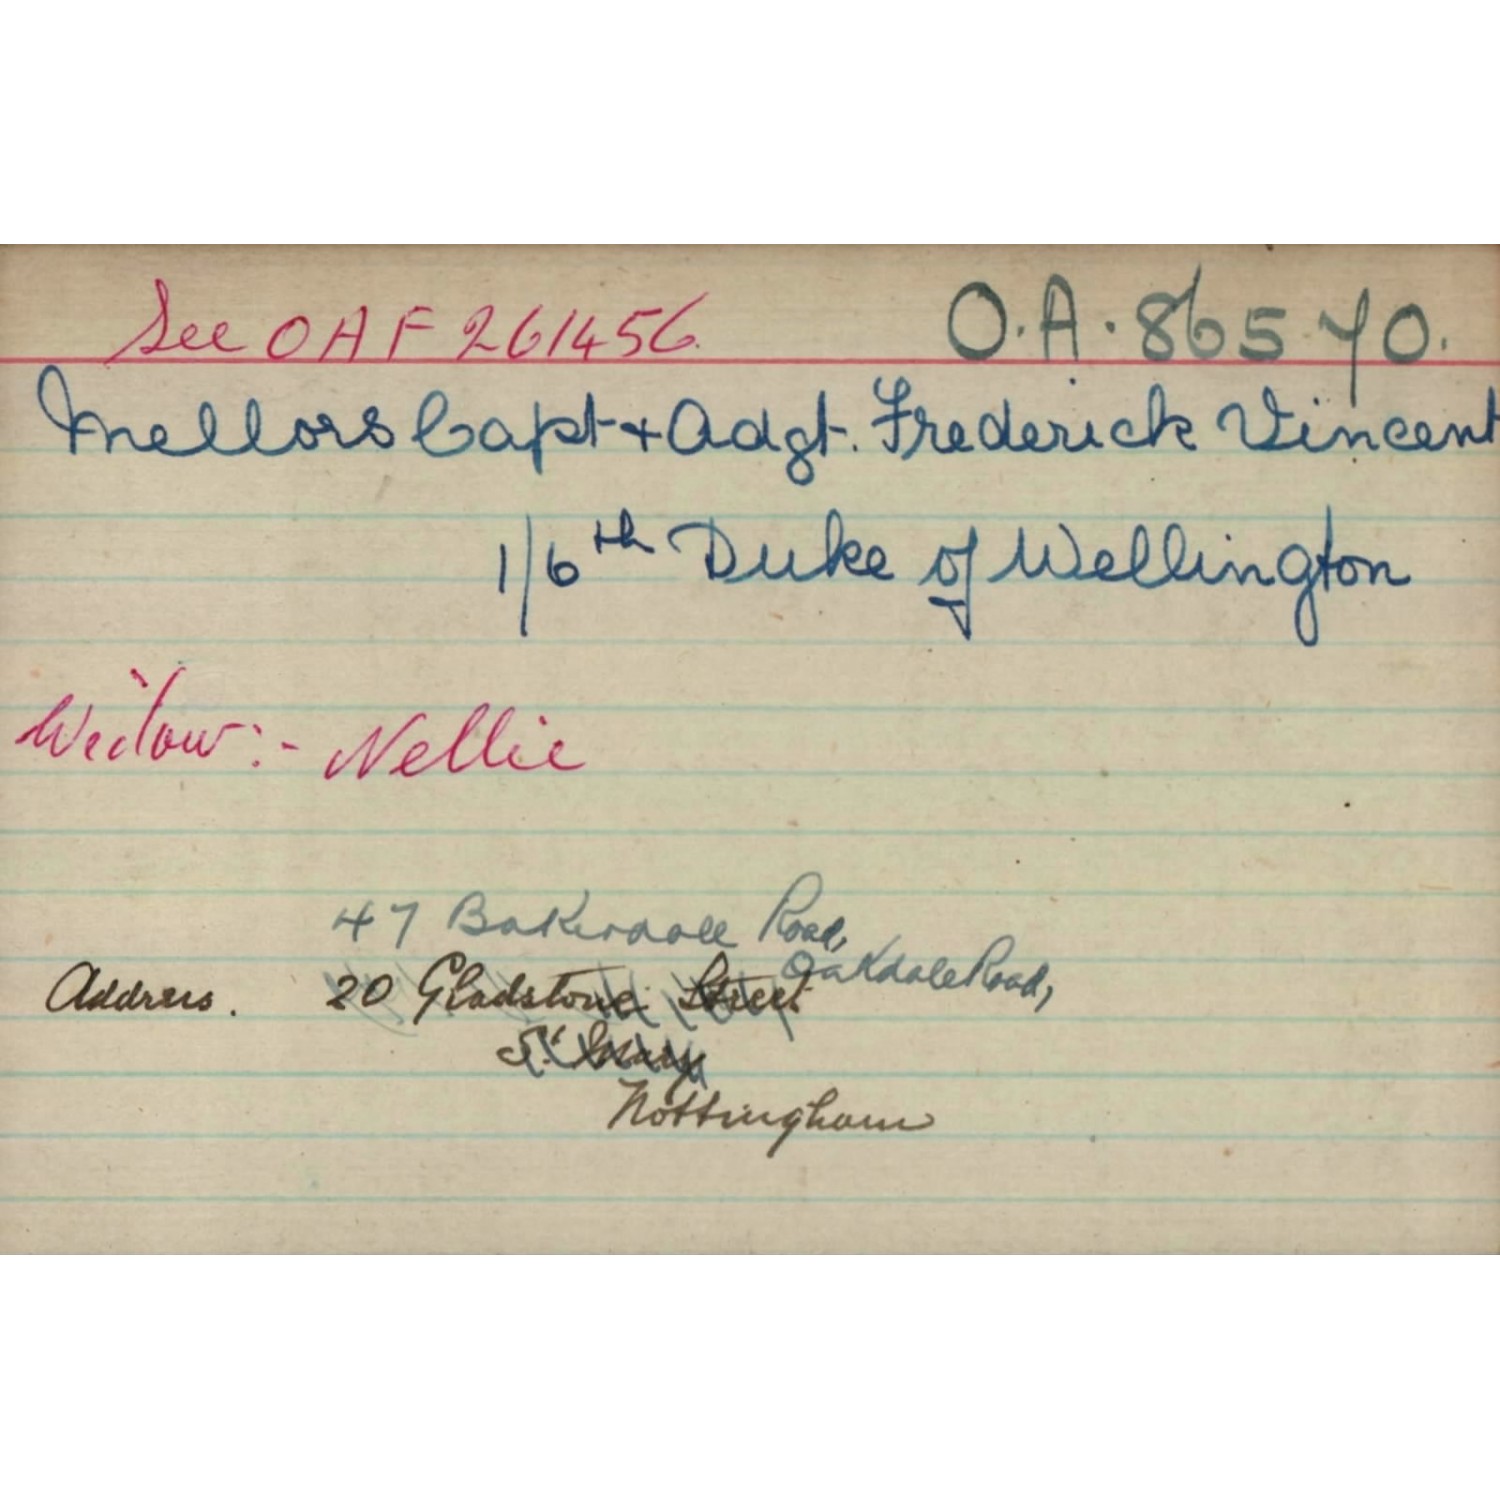 See OAF 261456. O.A. 86570.
Mellors Capt + Adgt. Frederick Vincent
1/6th Duke of Wellington
Widow:- Nellie
47 Bakerdale Road,
Oakdale Road,
Address. 20 Gladstone Street
Nottingham